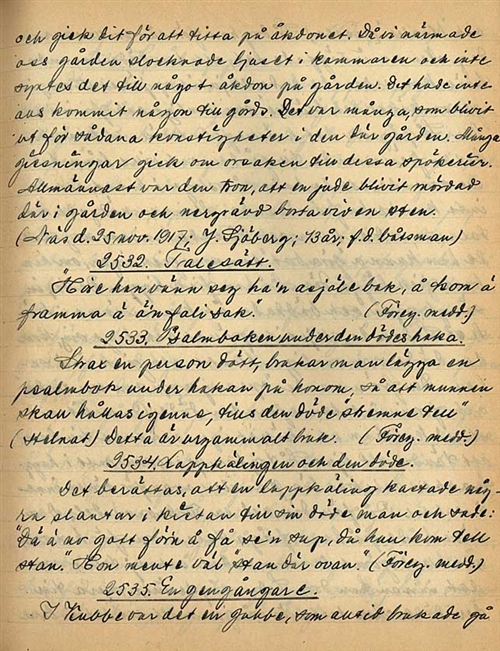 och gick dit för att titta på åkdonet. Då vi närmade
oss gården slocknade ljuset i kammaren och inte
syntes det till något åkdon på gården. Det hade inte
ens kommit någon till gårds. Det var många, som blivit
ut för sådana konstigheter i den där gården. Många
gissningar gick om orsaken till dessa spökerier.
Allmännast var den tron, att en jude blivit mördad
där i gården och nergrävd borta vid en sten.
(Näs d. 25 nov. 1917; J. Sjöberg; 73 år; f.d. båtsman)
2532. Talesätt.
"Här henvänn sej ha'n a själc bek, å kom å
framma å ä'n fali sak." (Föreg. medd.)
2533. Psalmboken under den dödes haka.
Strax en person dött, brukar man lägga en
psalmbok under hakan på honom, så att munnen
skall hållas igenns, tills den döde "stemne tell"
(stelnat) Detta är urgammalt bruk. (Föreg. medd.)
2534. Lappkälingen och den döde.
Det berättas, att en lappkäling kastade någ-
ra slantar i kistan till sin döde man och sade:
"Dä ä no gott för'n å få se'n sup, då han kom tell
stan." Hon mente väl "stan där ovan." (Föreg. medd.)
2535. En gengångare.
I Kubbe var det en gubbe, som alltid brukade gå